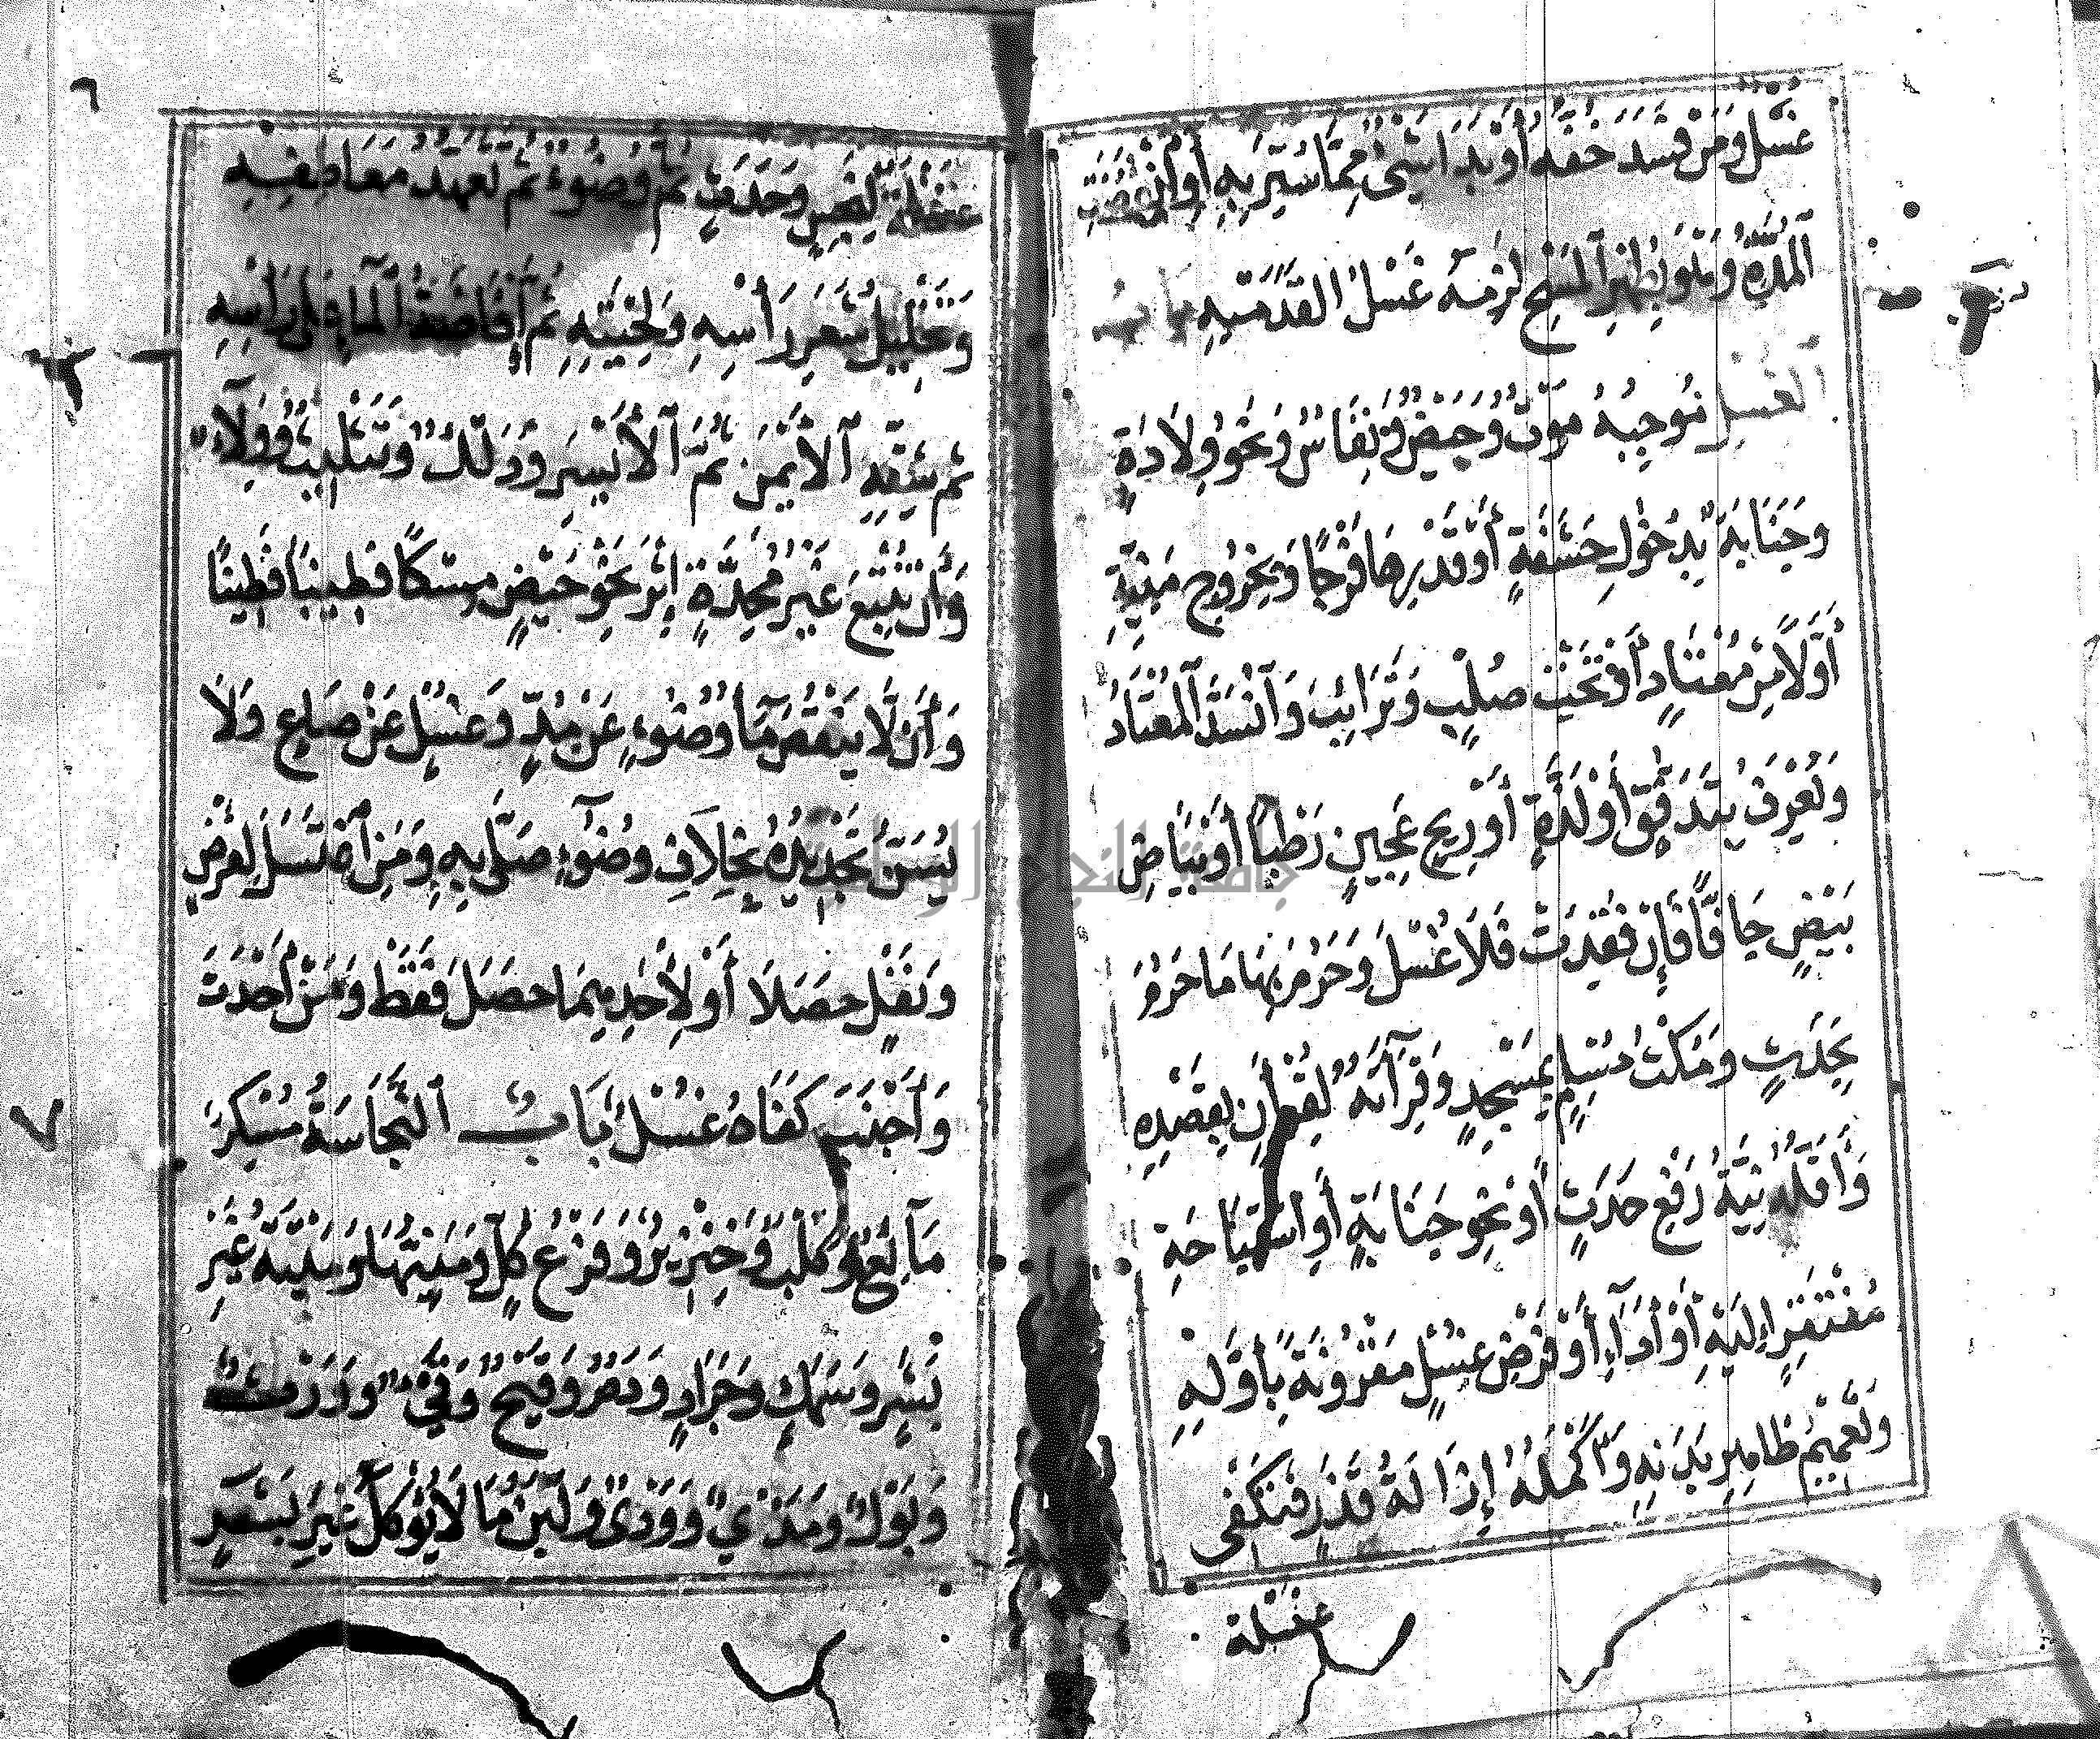 غُسْلٌ وَمَنْ فَسَدَ خُفُّهُ أَوْ بَدَا شَيْءٌ مِمَّا سُتِرَ بِهِ أَوِ انْقَضَتِ
ٱلْمُدَّةُ وَهُوَ بِطُهْرِ ٱلْمَسْحِ لَزِمَهُ غَسْلُ الْقَدَمَيْهِ بَابُ
ٱلْغُسْلِ مُوجِبُهُ مَوْتٌ وَحَيْضٌ وَنِفَاسٌ وَنَحْوُ وِلَادَةٍ
وَجَنَابَةٌ بِدُخُولِ حَشَفَةٍ أَوْ قَدْرِهَا فَرْجًا وَبِخُرُوجِ مَنِيِّهِ
أَوَّلًا مِنْ مُعْتَادٍ أَوْ تَحْتَ صُلْبٍ وَتَرَائِبَ وَٱنْسَدَّ ٱلْمُعْتَادُ
وَيُعْرَفُ بِتَدَفُّقٍ أَوْ لَذَّةٍ أَوْ رِيحِ عَجِينٍ رَطْبًا أَوْ بَيَاضِ
بَيْضٍ جَافًّا فَإِنْ فُقِدَتْ فَلَا غُسْلَ وَحَرُمَ بِهَا مَا حَرُمَ
بِحَدَثٍ وَمُكْثُ مُسْلِمٍ بِمَسْجِدٍ وَقِرَآءَتُهُ لِقُرْآنٍ بِقَصْدِهِ
وَأَقَلُّهُ نِيَّةُ رَفْعِ حَدَثٍ أَوْ نَحْوِ جَنَابَةٍ أَوِ اسْتِبَاحَةِ
مُفْتَقِرٍ إِلَيْهِ أَوْ أَدَآءِ أَوْ فَرْضِ غُسْلٍ مَقْرُونَةً بِأَوَّلِهِ
وَتَعْمِيمُ ظَاهِرِ بَدَنِهِ وَأَكْمَلُهُ إِزَالَةُ قَذَرٍ فَتَكْفِي
غسلة
٦
غَسْلَةٌ لِنَجَسٍ وَحَدَثٍ ثُمَّ وُضُوءٌ ثُمَّ تَعَهُّدُ مَعَاطِفِهِ
وَتَخْلِيلُ شَعَرِ رَأْسِهِ وَلِحْيَتِهِ ثُمَّ إِفَاضَةُ ٱلْمَاءِ عَلَى رَأْسِهِ
ثُمَّ شِقِّهِ ٱلْأَيْمَنِ ثُمَّ ٱلْأَيْسَرِ وَدَلْكٌ وَتَثْلِيثٌ وَوِلَآءٌ
وَأَنْ تُتْبِعَ غَيْرُ مُحِدَّةٍ إِثْرَ نَحْوِ حَيْضٍ مِسْكًا فَطِيبًا فَطِينًا
وَأَنْ لَّا يَنْقُصَ مَآءُ وُضُوءٍ عَنْ مُدٍّ وَغُسْلٍ عَنْ صَاعٍ وَلَا
يُسَنُّ تَجْدِيدُهُ بِخِلَافِ وُضُوءٍ صَلَّى بِهِ وَمَنِ ٱغْتَسَلَ لِفَرْضٍ
وَنَفْلٍ حَصَلَا أَوْ لِأَحَدِهِمَا حَصَلَ فَقَطْ وَمَنْ أَحْدَثَ
وَأَجْنَبَ كَفَاهُ غُسْلٌ بَابُ ٱلنَّجَاسَةُ مُسْكِرٌ
مَآئِعٌ وَكَلْبٌ وَخِنْزِيرٌ وَفَرْعُ كُلٍّ وَمَنِيُّهَا وَمَيْتَةُ غَيْرِ
بَشَرٍ وَسَمَكٍ وَجَرَادٍ وَدَمٌ وَقَيْحٌ وَقَيْءٌ وَرَوْثٌ
وَبَوْلٌ وَمَذْيٌ وَوَدْيٌ وَلَبَنُ مَا لَا يُؤْكَلُ غَيْرَ بَشَرٍ
٧